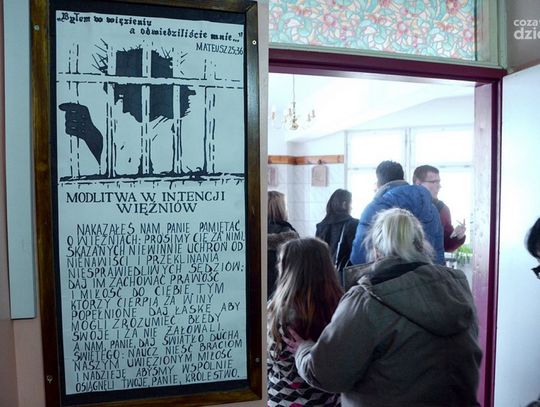 "Byłem w więzieniu
a odwiedziliście mnie..."
MATEUSZ 25;36
MODLITWA W INTENCJI
WIĘŹNIÓW
NAKAZAŁEŚ NAM, PANIE PAMIĘTAĆ
O WIĘŹNIACH; PROSIMY CIĘ ZA NIMI,
SKAZANYCH NIEWINNIE UCHROŃ OD
NIENAWIŚCI I PRZEKLINANIA
NIESPRAWIEDLIWYCH SĘDZIÓW;
DAJ IM ZACHOWAĆ PRAWOŚĆ
I MIŁOŚĆ DO CIEBIE. TYM
KTÓRZY CIERPIĄ ZA WINY
POPEŁNIONE DAJ ŁASKĘ ABY
MOGLI ZROZUMIEĆ BŁĘDY
SWOJE I ZA NIE ŻAŁOWALI.
A NAM, PANIE, DAJ ŚWIATŁO DUCHA
ŚWIĘTEGO: NAUCZ NIEŚĆ BRACIOM
NASZYM UWIĘZIONYM MIŁOŚĆ
I NADZIEJĘ ABYŚMY WSPÓLNIE
OSIĄGNĘLI TWOJE, PANIE, KRÓLESTWO.